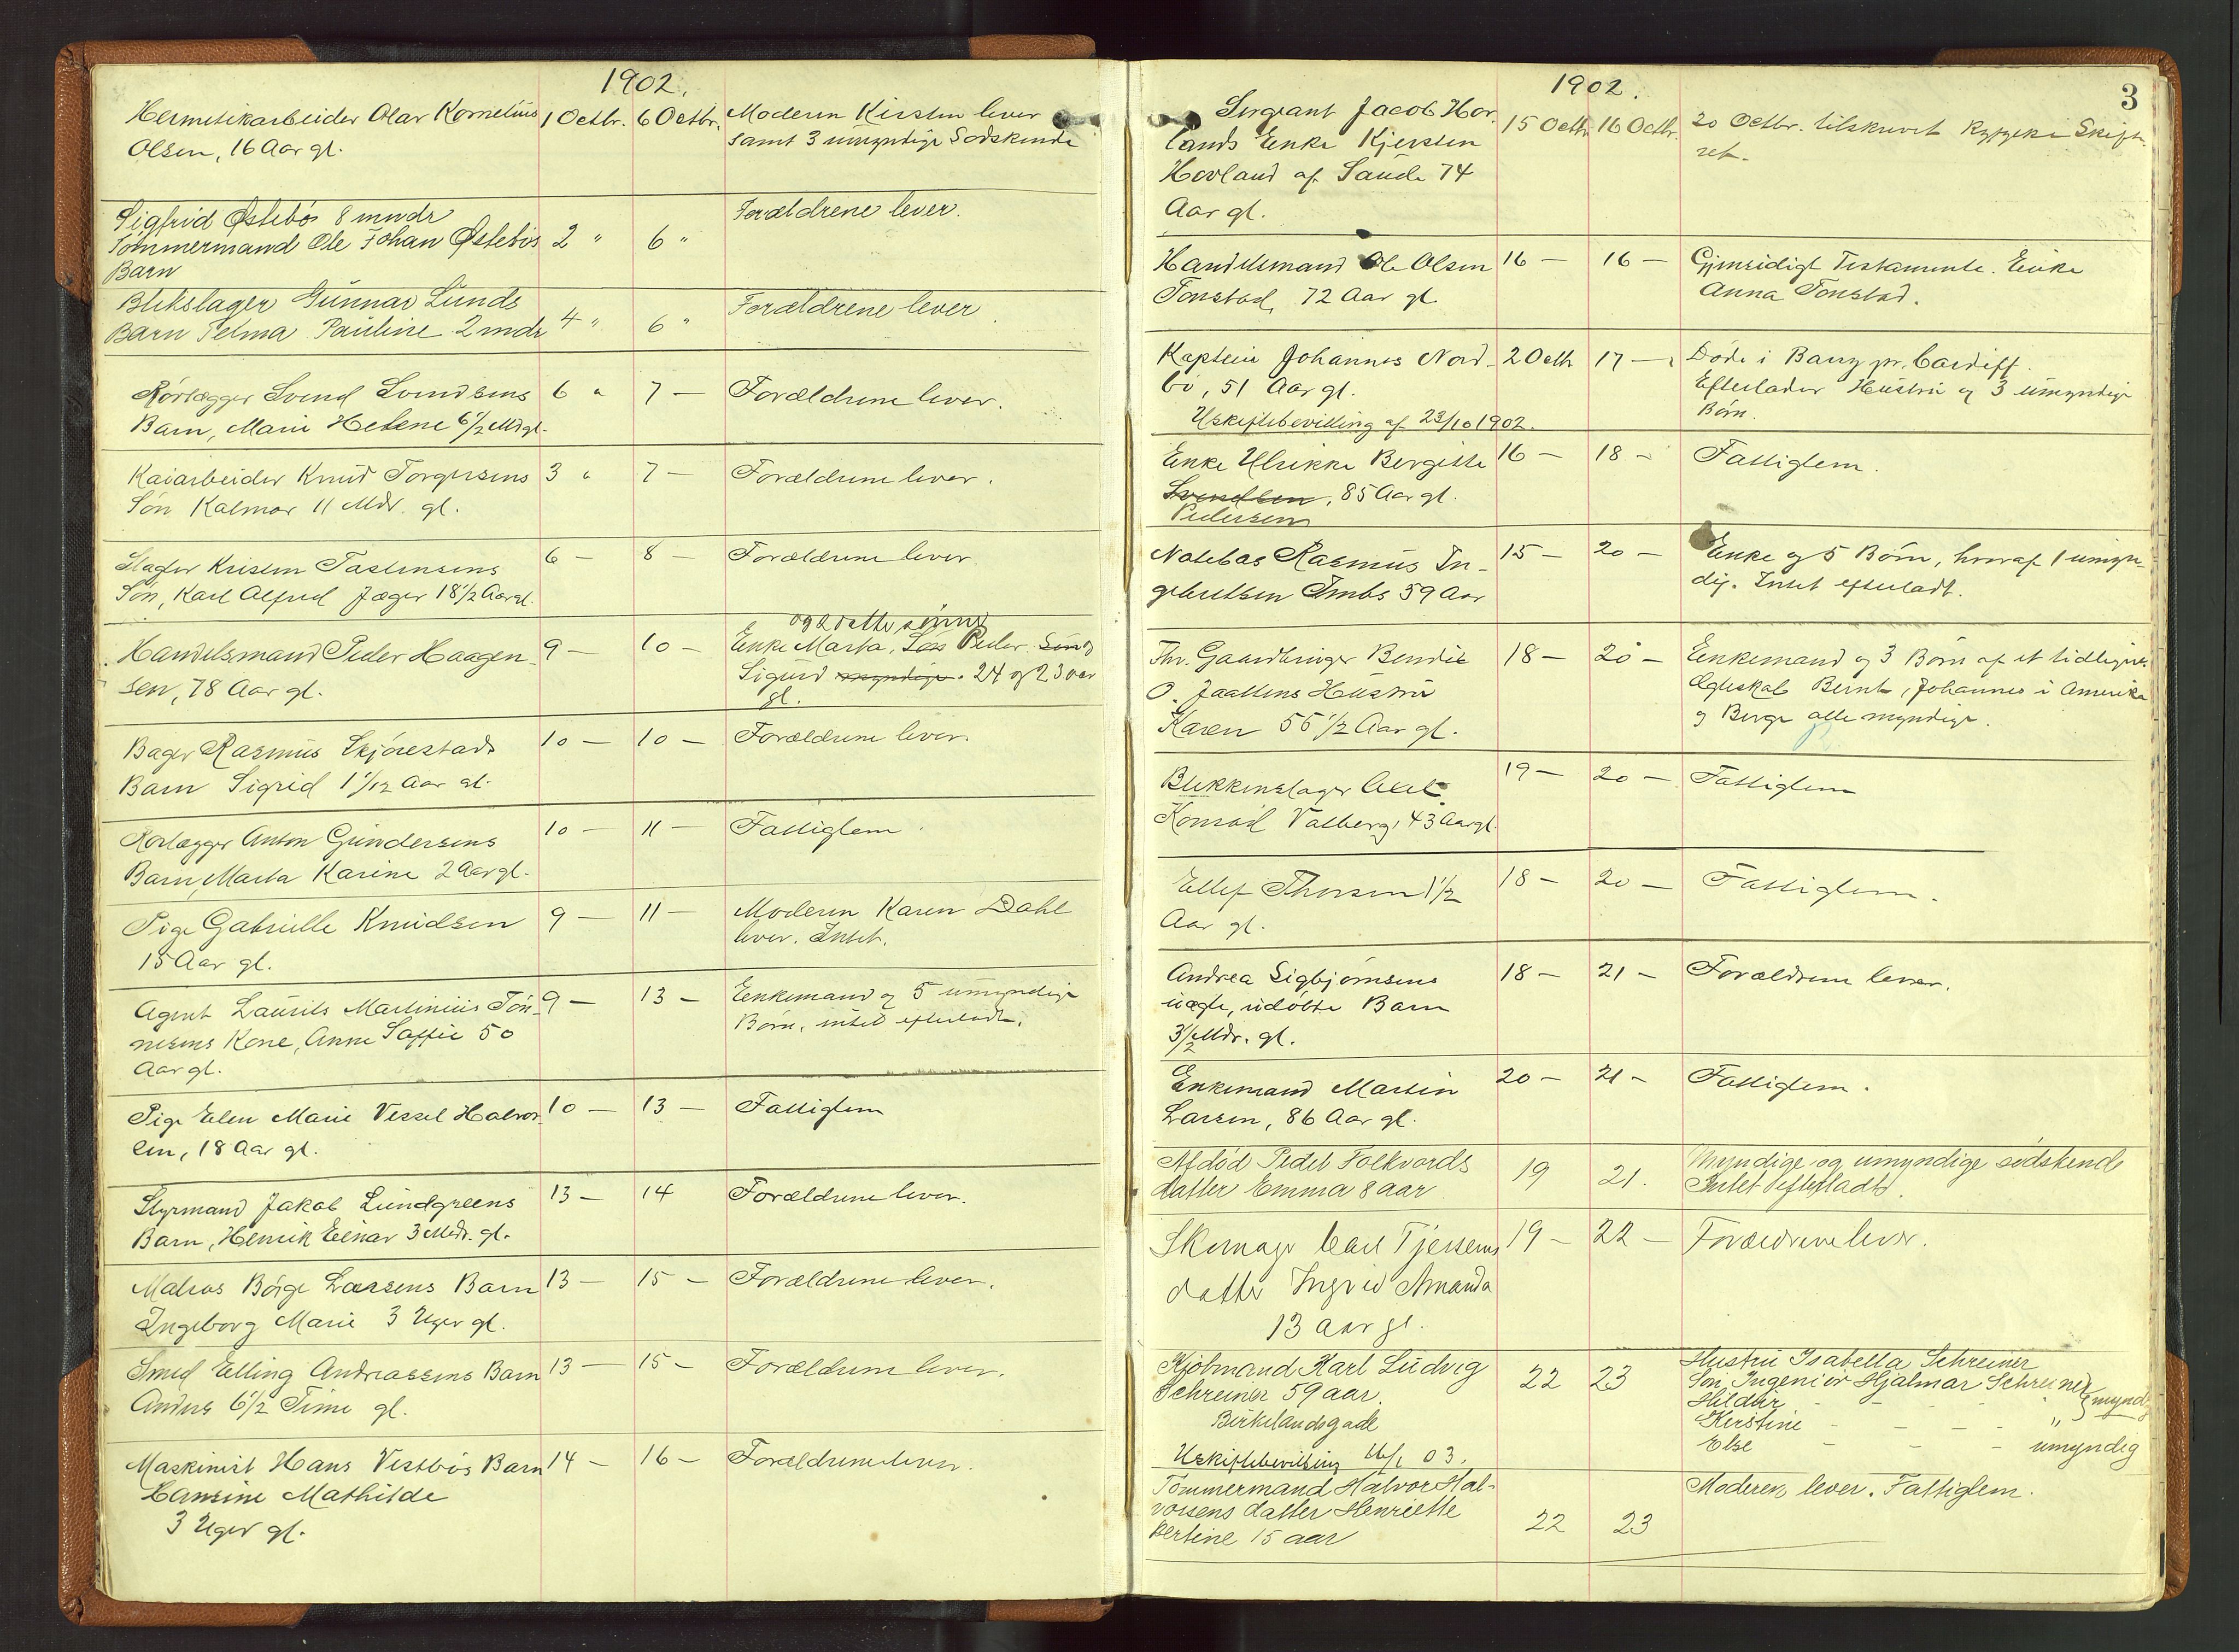 1902.
Hermetikarbeider Olav Kornelius 1 Octbr. 6 Octbr. Moderen Kirsten lever
Olsen, 16 Aar gl. samt 3 umyndige Sødskende
Sigfrid Østebøs 8 mndr Forældrene lever.
Tømmermand Ole Johan Østebøs 2 " 6 "
Barn
Blikslager Gunnar Lunds Forældrene lever
Barn Selma Pauline 2 mndr 4 " 6 "
Rørlægger Svend Svendsens 6 " 7 — Forældrene lever.
Barn, Marie Helene 6 1/2 Md gl.
Kaiarbeider Knud Torgersens 3 " 7 — Forældrene lever.
Søn Kalmar 11 Mdr. gl.
Slagter Kristen Tastensens 6 — 8 — Forældrene lever
Søn, Karl Alfred Jæger 18 1/2 Aar gl.
og 2 dattersønner
Handelsmand Peder Haagen- 9 — 10 — Enke Marta, Peder
sen, 78 Aar gl. Sigurd myndige. 24 og 23 aar
gl.
Bager Rasmus Skjørestads 10 — 10 — Forældrene lever.
Barn Sigrid 1 1/12 Aar gl.
Rørlægger Anton Gundersens 10 — 11 — Fattiglem
Barn, Marta Karine 2 Aar gl.
Pige Gabrielle Knudsen 9 — 11 — Moderen Karen Dahl
15 Aar gl. lever. Intet.
Agent Laurits Martinius Tøn- 9 — 13 — Enkemand og 5 umyndige
nesens Kone, Anne Soffie 50 Børn, intet efterladt.
Aar gl.
Pige Elen Marie Vessel Halvor- 10 — 13 — Fattiglem
sen, 18 Aar gl.
Styrmand Jakob Lundgreens 13 — 14 Forældrene lever.
Barn, Henrik Einar 3 Mdr. gl.
Matros Børge Larsens Barn 13 — 15 — Forældrene lever.
Ingeborg Marie 3 Uger gl.
Smed Elling Andreassens Barn 13 — 15 — Forældrene lever.
Anders 6 1/2 Time gl.
Maskinist Hans Vestbøs Barn 14 — 16 — Forældrene lever.
Hansine Mathilde
3 Uger gl.
1902.
3
Sergeant Jacob Hov- 15 Octbr. 16 Octbr. 20 Octbr. tilskrevet Ryfylke Skifte-
lands Enke Kjersten ret.
Hovland af Saude 74
Aar gl.
Handelsmand Ole Olsen 16 — 16 — Gjensidigt Testamente. Enke
Tonstad, 72 Aar gl. Anna Tonstad.
Kaptein Johannes Nord- 2 Octbr 17 — Døde i Barry pr. Cardiff.
bø, 51 Aar gl. Efterlader Hustru og 3 umyndige
Børn.
Uskiftebevilling af 23/10 1902.
Enke Ulrikke Bergitte 16 — 18 — Fattiglem.
Svendsen, 85 Aar gl.
Pedersen
Notebas Rasmus In- 15 — 20 — Enke og 5 Børn, hvoraf 1 umyn-
gebretsen Imbs 59 Aar dig. Intet efterladt.
Fhv. Gaardbruger Bendik 18 — 20 — Enkemand og 3 Børn af et tidligere
O. Jaattens Hustru Ægteskab Bernt, Johannes i Amerika
Karen 55 1/2 Aar gl. og Berge alle myndige.
Blikkenslager Axel 19 — 20 — Fattiglem
Konrad Valberg, 43 Aar gl.
Ellef Thorsen 1 1/2 18 — 20 — Fattiglem.
Aar gl.
Andrea Sigbjørnsens 18 — 21 — Forældrene lever.
uægte, udøbte Barn
3 1/2 Mdr. gl.
Enkemand Martin 20 — 21 — Fattiglem.
Larsen, 86 Aar gl.
Afdød Peder Folkvords Myndige og umyndige sødskende
datter Emma 8 aar 19 21. Intet efterladt.
Skomager Carl Tjersens 19 — 22 — Forældrene lever.
datter Ingrid Amanda
13 Aar gl.
Kjøbmand Karl Ludvig 22 23 Hustru Isabella Schreiner
Schreiner 59 aar. Søn Ingeniør Hjalmar Schreiner
Hildur - - - - myndig
Birkelandsgade Kirstine - - - "
Else - - - umyndig
Uskiftebevilling 03.
Tømmermand Halvor Hal- Moderen lever. Fattiglem.
vorsens datter Henriette 22 23
Bertine 15 aar